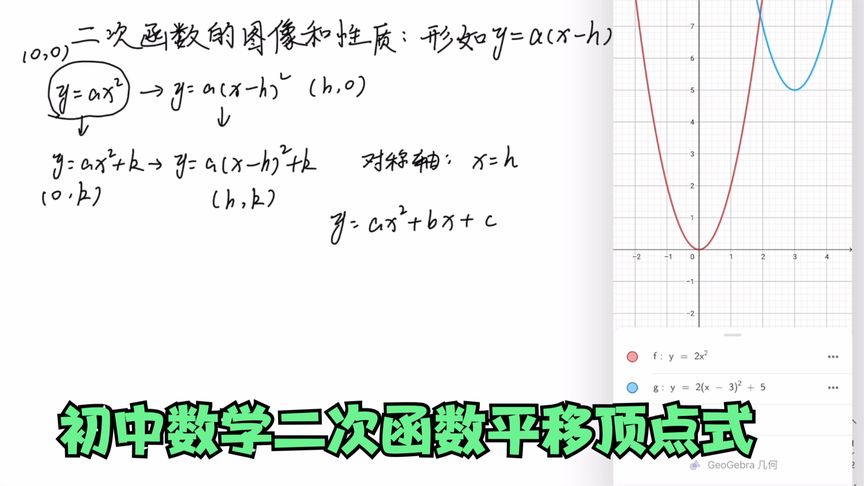 二次函数的图像和性质：形如y=a(x-h)
(0,0)
y=ax² → y=a(x-h)² (h,0)
↓ ↓
y=ax²+k → y=a(x-h)²+k 对称轴：x=h
(0,k) (h,k)
y=ax²+bx+c
7
6
5
4
3
2
1
-2 -1 0 1 2 3 4
-1
-2
f: y = 2x²
g: y = 2(x − 3)² + 5
GeoGebra 几何
初中数学二次函数平移顶点式